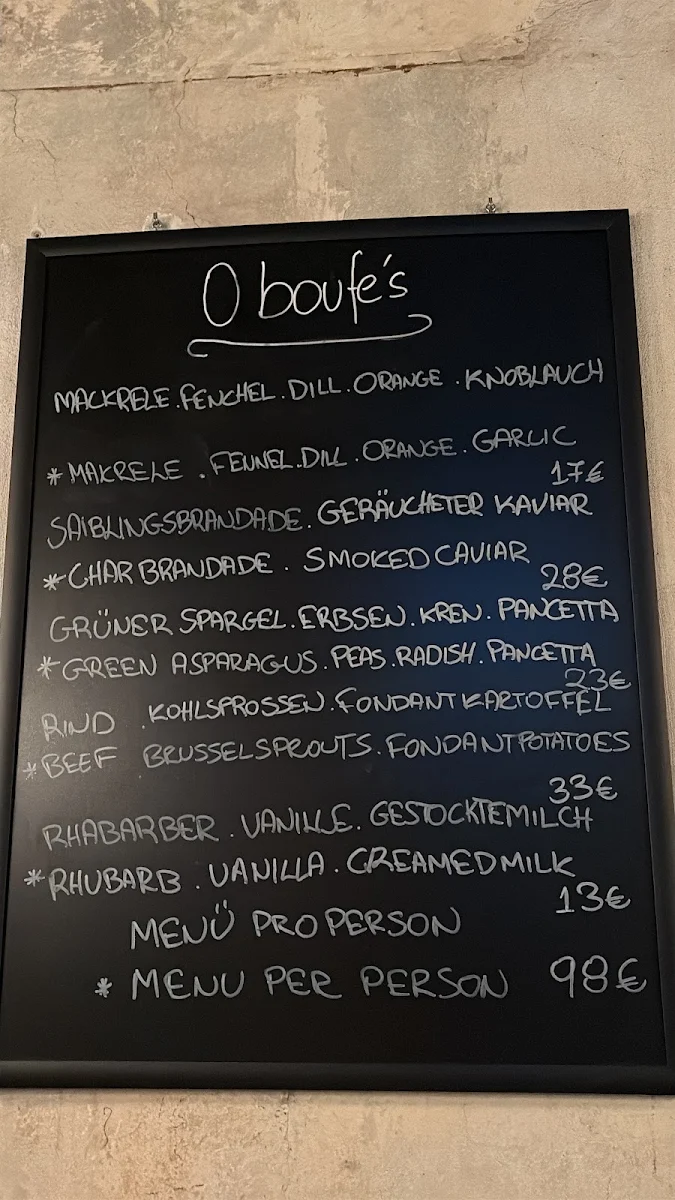 O boufe's
MACKRELE . FENCHEL . DILL . ORANGE . KNOBLAUCH
* MAKRELE . FENNEL . DILL . ORANGE . GARLIC
17€
SAIBLINGSBRANDADE . GERÄUCHETER KAVIAR
* CHAR BRANDADE . SMOKED CAVIAR
28€
GRÜNER SPARGEL . ERBSEN . KREN . PANCETTA
* GREEN ASPARAGUS . PEAS . RADISH . PANCETTA
23€
RIND . KOHLSPROSSEN . FONDANT KARTOFFEL
* BEEF BRUSSELSPROUTS . FONDANT POTATOES
33€
RHABARBER . VANILLE . GESTOCKTE MILCH
* RHUBARB . VANILLA . CREAMED MILK
13€
MENÜ PRO PERSON
* MENU PER PERSON 98€